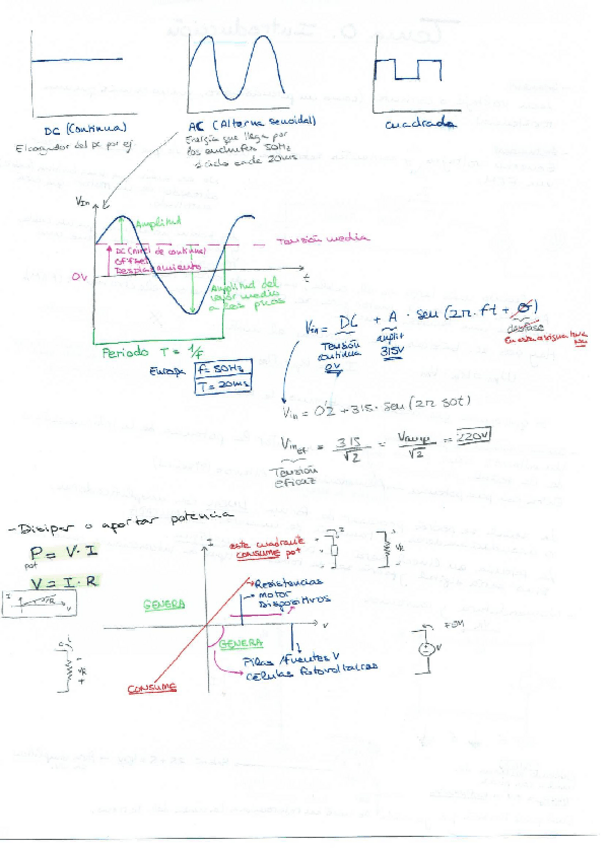 DC (Continua)
El cargador del pc por ej
AC (Alterna senoidal)
Energía que llega por
los enchufes 50Hz
1 ciclo cada 20ms
cuadrada
Vin
Amplitud
Tensión media
DC (nivel de continua)
offset
Desplazamiento
0V
t
Amplitud del
valor medio
a los picos
Periodo T = 1/f
Europa
f = 50Hz
T = 20ms
Vin = DC + A · sen (2π·ft + Ø)
Tensión
continua
0V
amplit
315V
desfase
En esta asignatura
no
Vin = 0'2 + 315 · sen (2π 50t)
Vin ef = 315/√2 = =220V
Tensión
eficaz
- Disipar o aportar potencia
P = V · I
pot
V = I · R
I
R
V
I
este cuadrante
CONSUME pot
I
VR
Resistencias
motor
Dispositivos
GENERA
V
GENERA
Pilas / Fuentes V
células fotovoltaicas
CONSUME
VR
V